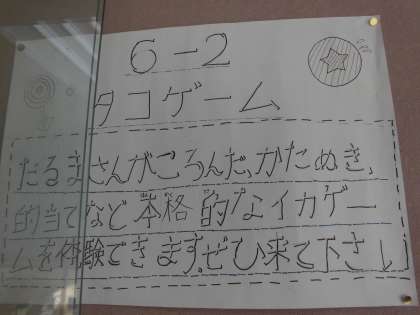 6-2
タコゲーム
だるまさんがころんだ、かたぬき、
的当てなど本格的なイカゲー
ムを体験できます。ぜひ来て下さい